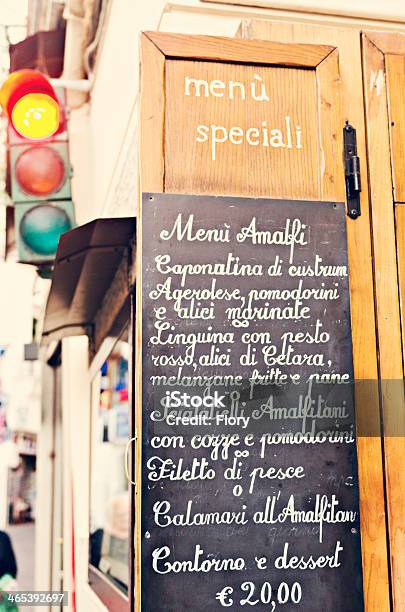 menù
speciali
Menù Amalfi
Caponatina di custrum
Agerolese, pomodorini
e alici marinate
Linguina con pesto
rosso, alici di Cetara,
melanzane fritte e pane
Scialatelli Amalfitani
con cozze e pomodorini
Filetto di pesce
o
Calamari all'Amalfitan
Contorno e dessert
€ 20,00
iStock
Credit: Fiory
465392697